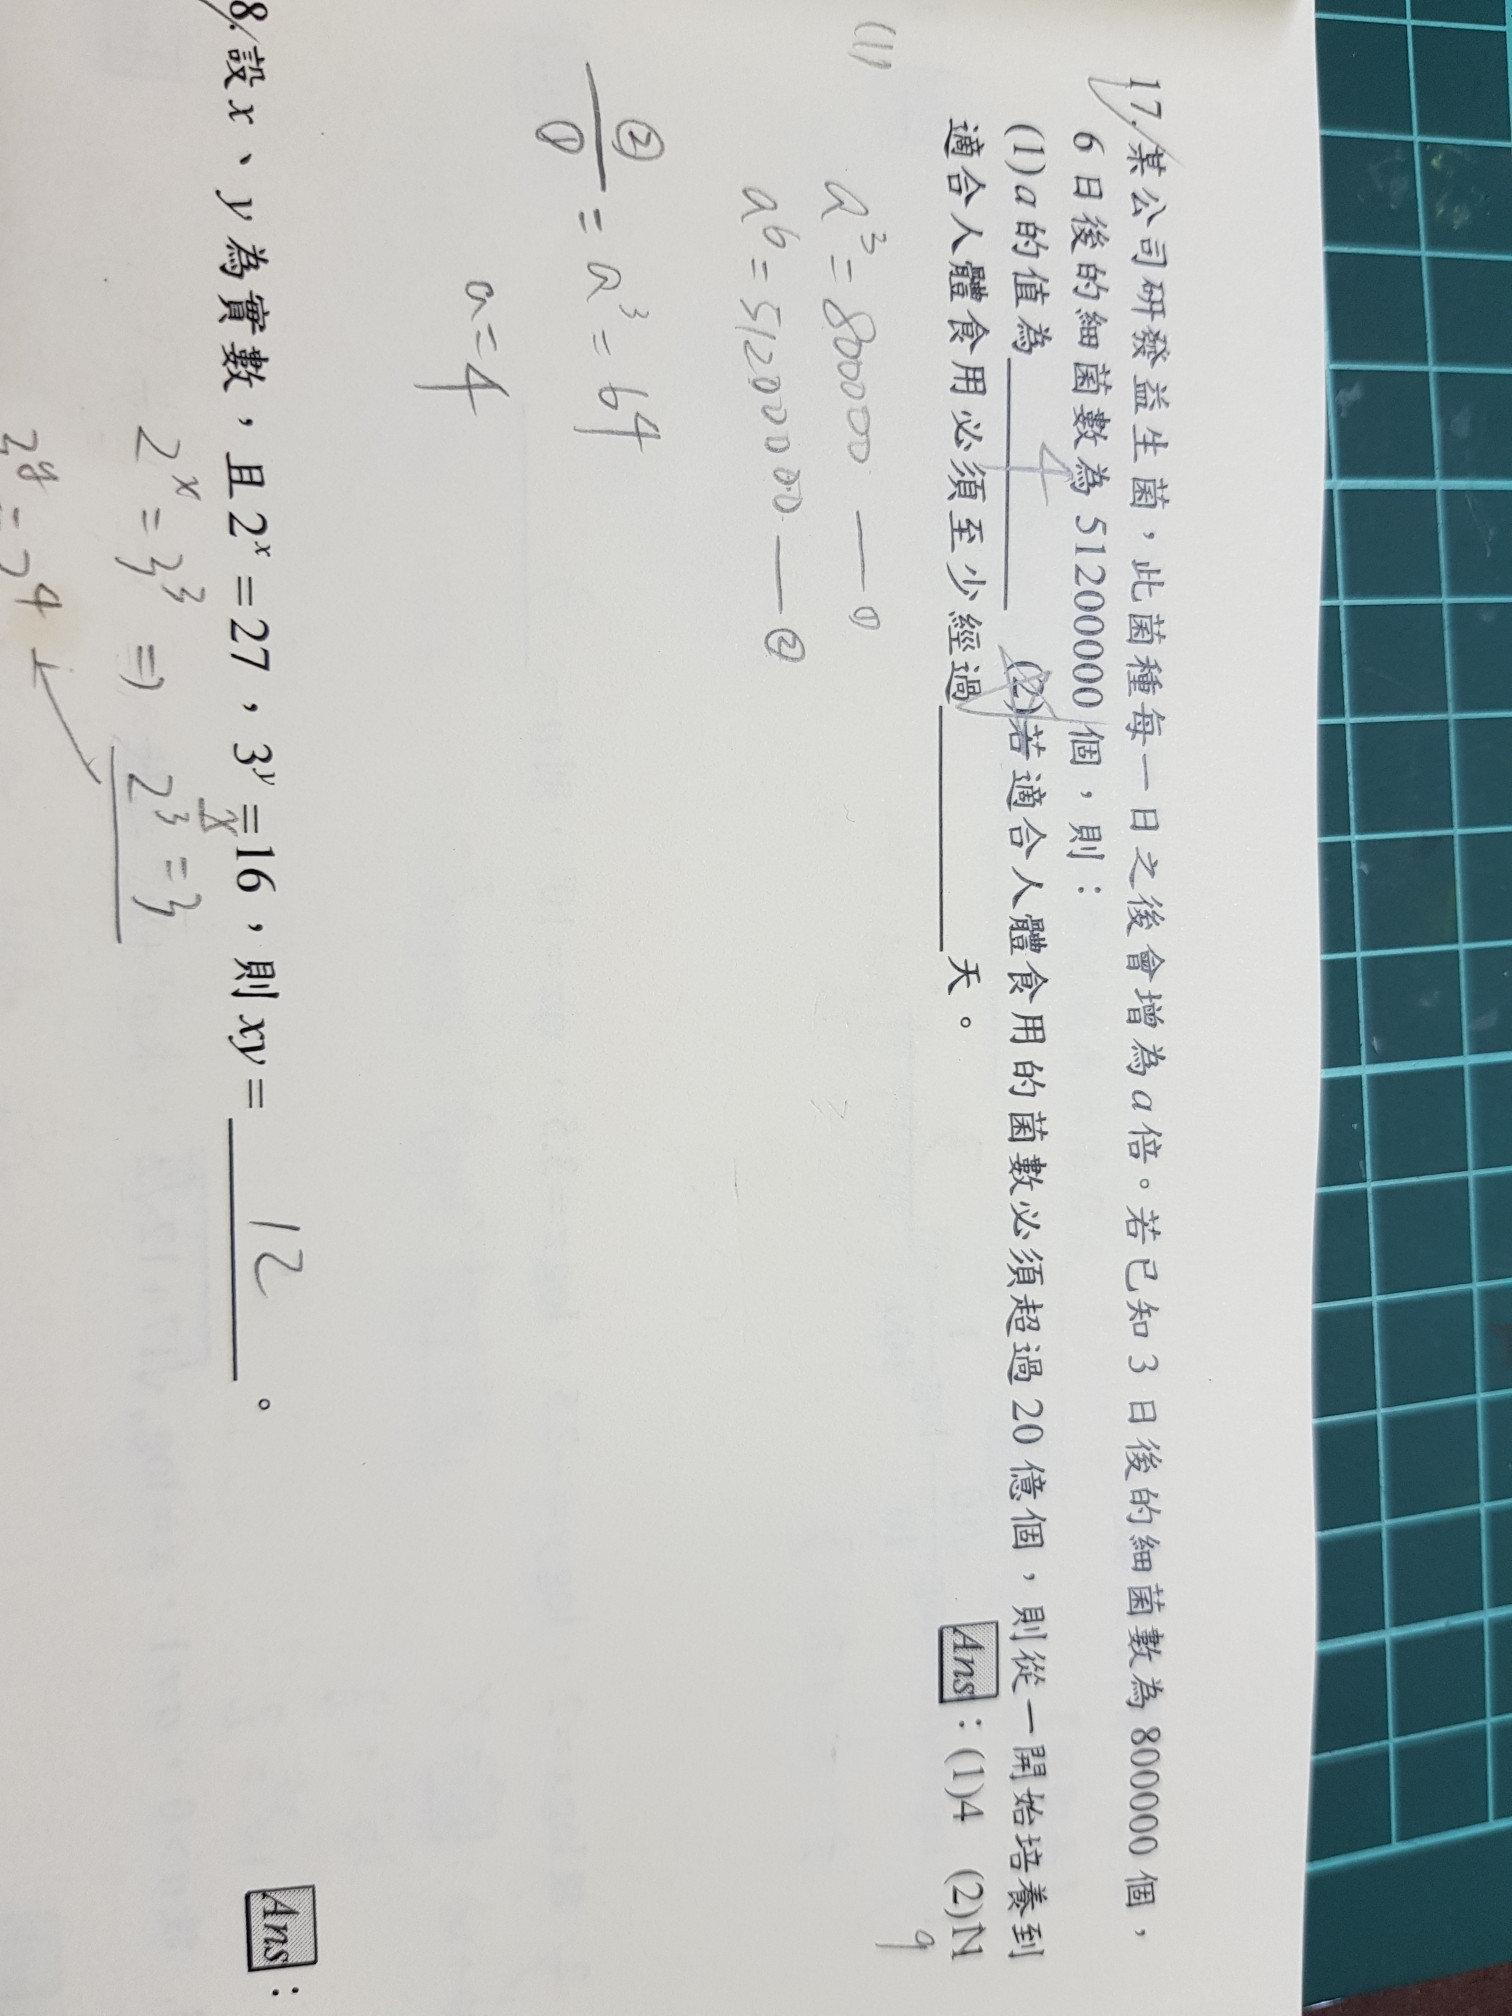 17. 某公司研發益生菌，此菌種每一日之後會增為a倍。若已知3日後的細菌數為800000個，
6日後的細菌數為51200000個，則：
(1)a的值為 4 (2)若適合人體食用的菌數必須超過20億個，則從一開始培養到
適合人體食用必須至少經過 天。 Ans：(1)4 (2)N
9
(1) a³=800000 — ①
a⁶=51200000 — ②
②/① = a³ = 64
a=4
8. 設x、y為實數，且2ˣ=27，3ʸ=16，則xy= 12 。 Ans：
x
2ˣ = 3³ ⇒ 2³ = 3
3ʸ = 2⁴